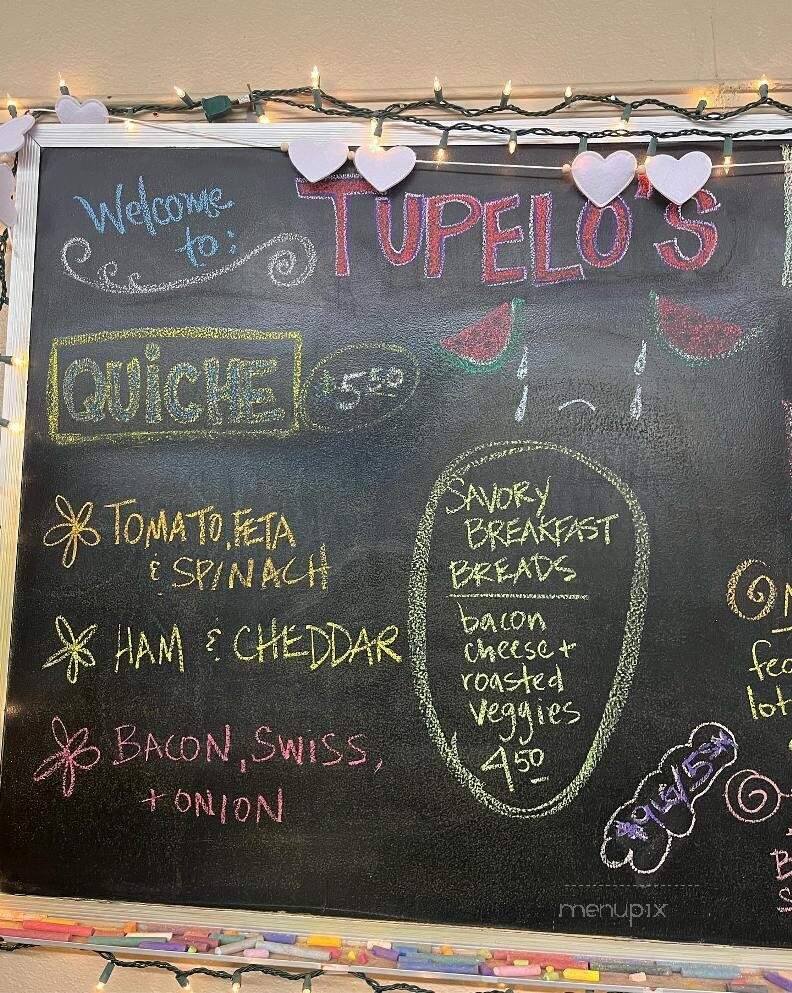 Welcome
to:
TUPELO'S
QUiCHE $5.50
TOMATO, FETA
& SPINACH
HAM & CHEDDAR
BACON, SWISS,
+ ONION
SAVORY
BREAKFAST
BREADS
bacon
cheese +
roasted
veggies
4.50
fea
lot
menupix